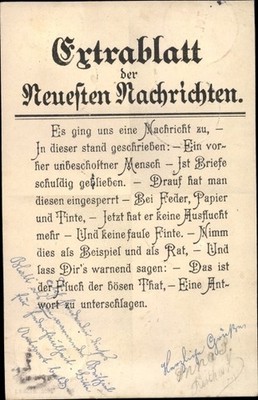 Extrablatt
der
Neuesten Nachrichten.
Es ging uns eine Nachricht zu, –
In dieser stand geschrieben: – Ein vor-
her unbescholtner Mensch – Ist Briefe
schuldig geblieben. – Drauf hat man
diesen eingesperrt – Bei Feder, Papier
und Tinte, – Jetzt hat er keine Ausflucht
mehr – Und keine faule Finte. – Nimm
dies als Beispiel und als Rat, – Und
lass Dir's warnend sagen: – Das ist
der Fluch der bösen That, – Eine Ant-
wort zu unterschlagen.
Herzliche Grüße